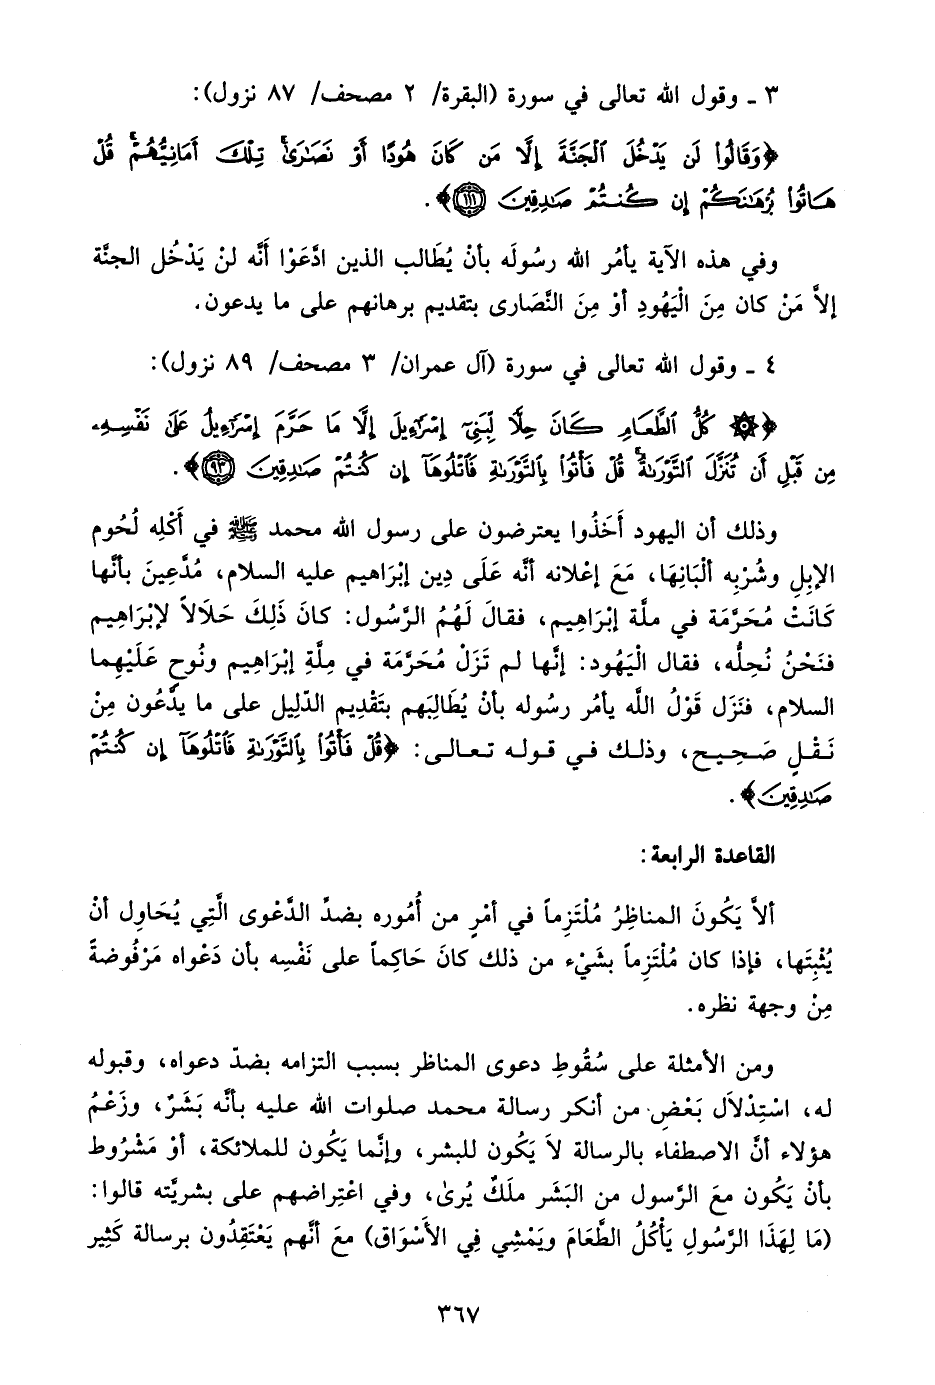 ٣ ـ وقول الله تعالى في سورة (البقرة/ ٢ مصحف/ ٨٧ نزول):
﴿وَقَالُوا۟ لَن يَدْخُلَ ٱلْجَنَّةَ إِلَّا مَن كَانَ هُودًا أَوْ نَصَٰرَىٰ ۗ تِلْكَ أَمَانِيُّهُمْ ۗ قُلْ
هَاتُوا۟ بُرْهَٰنَكُمْ إِن كُنتُمْ صَٰدِقِينَ ﴿١١١﴾﴾.
وفي هذه الآية يأمُر الله رسُولَه بأنْ يُطَالب الذين ادَّعَوْا أنَّه لنْ يَدْخُل الجنَّة
إلاَّ مَنْ كان مِنَ الْيَهُودِ أوْ مِنَ النَّصَارى بتقديم برهانهم على ما يدعون.
٤ ـ وقول الله تعالى في سورة (آل عمران/ ٣ مصحف/ ٨٩ نزول):
﴿۞ كُلُّ ٱلطَّعَامِ كَانَ حِلًّا لِّبَنِىٓ إِسْرَٰٓءِيلَ إِلَّا مَا حَرَّمَ إِسْرَٰٓءِيلُ عَلَىٰ نَفْسِهِۦ
مِن قَبْلِ أَن تُنَزَّلَ ٱلتَّوْرَىٰةُ ۗ قُلْ فَأْتُوا۟ بِٱلتَّوْرَىٰةِ فَٱتْلُوهَآ إِن كُنتُمْ صَٰدِقِينَ ﴿٩٣﴾﴾.
وذلك أن اليهود أَخَذُوا يعترضون على رسول الله محمد ﷺ في أَكْلِه لُحُوم
الإبِلِ وشُرْبِه ألْبَانِهَا، مَعَ إعْلانه أنَّه عَلَى دِين إبْرَاهيم عليه السلام، مُدَّعِينَ بأنَّها
كَانَتْ مُحَرَّمَة في ملَّة إبْرَاهيم، فقالَ لَهُمُ الرَّسُول: كانَ ذَلِكَ حَلَالاً لإبْرَاهِيم
فنَحْنُ نُحِلُّه، فقال الْيَهُود: إنَّها لم تَزَلْ مُحَرَّمَة في مِلَّةِ إبْرَاهيم ونُوحٍ عَلَيْهِما
السلام، فنَزَل قَوْلُ اللَّه يأمُر رسُوله بأنْ يُطَالِبَهم بتَقْدِيمِ الدَّلِيل على ما يدَّعُون مِنْ
نَقْلٍ صَحِيحٍ، وذلك في قوله تعالى: ﴿قُلْ فَأْتُوا۟ بِٱلتَّوْرَىٰةِ فَٱتْلُوهَآ إِن كُنتُمْ
صَٰدِقِينَ﴾.
القاعدة الرابعة:
ألاَّ يَكُونَ المناظِرُ مُلْتَزِماً في أمْرٍ من أُمُوره بضدِّ الدَّعْوى الَّتِي يُحَاوِل أنْ
يُثْبِتَها، فإذا كان مُلْتَزِماً بشَيْء من ذلك كانَ حَاكِماً على نَفْسِه بأن دَعْواه مَرْفُوضةً
مِنْ وجهة نظره.
ومن الأمثلة على سُقُوطِ دعوى المناظر بسبب التزامه بضدّ دعواه، وقبوله
له، اسْتِدْلاَل بَعْضِ من أنكر رسالة محمد صلوات الله عليه بأنَّه بَشَرٌ، وزَعْمُ
هؤلاء أنَّ الاصطفاء بالرسالة لاَ يَكُون للبشر، وإنَّما يَكُون للملائكة، أوْ مَشْرُوط
بأنْ يَكُون معَ الرَّسول من البَشَر ملَكٌ يُرىٰ، وفي اعْتِراضهم على بشريَّته قالوا:
(مَا لِهَذَا الرَّسُولِ يَأْكُلُ الطَّعَامَ ويَمْشِي فِي الأَسْوَاق) معَ أنَّهم يَعْتَقِدُون برسالة كَثِير
٣٦٧